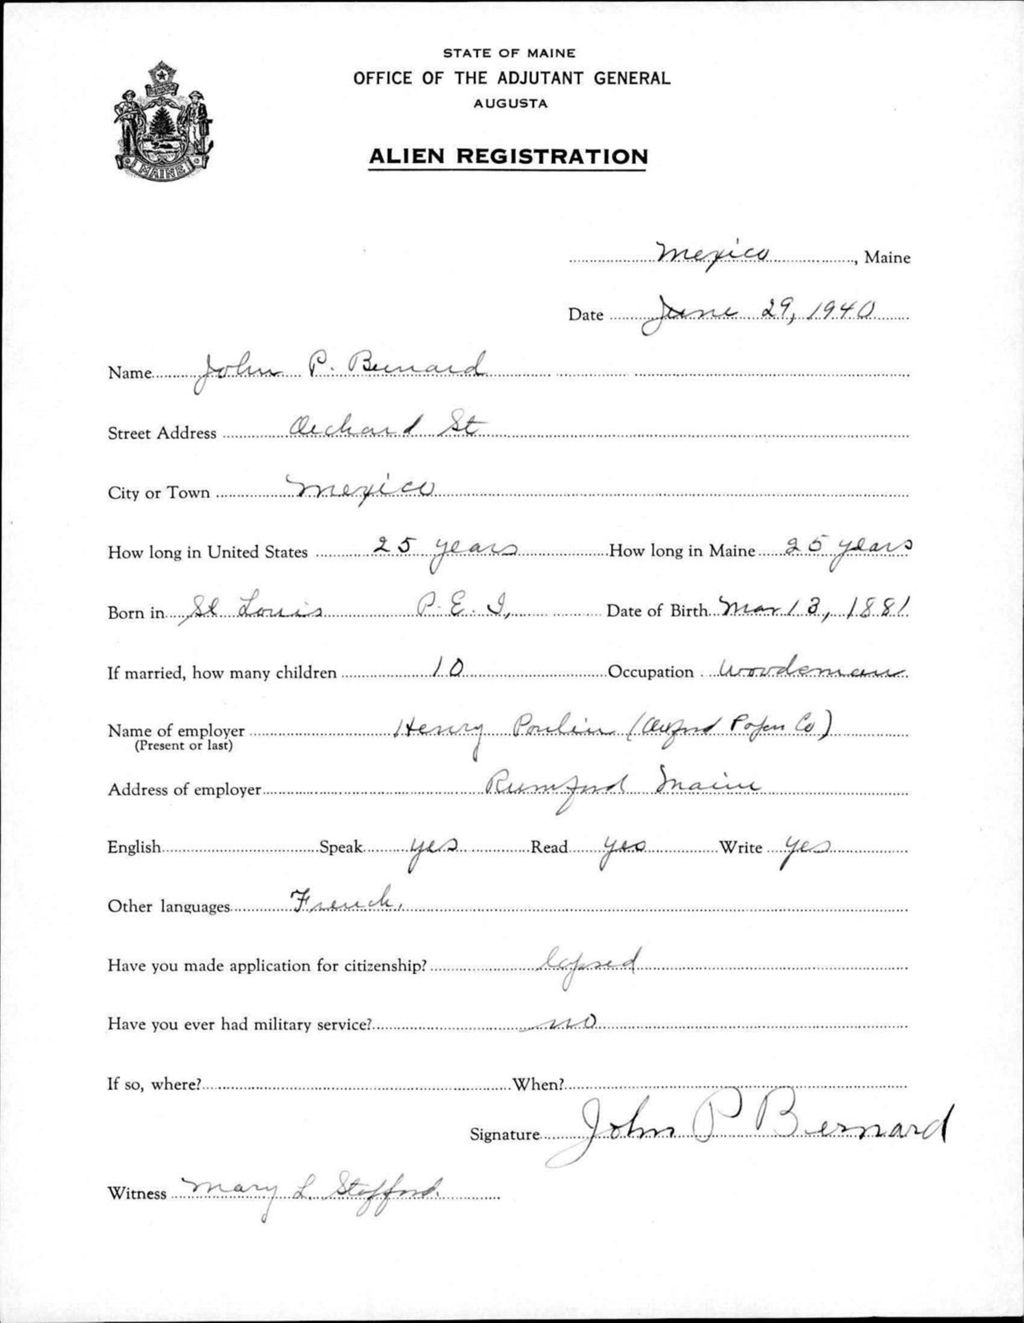 STATE OF MAINE
OFFICE OF THE ADJUTANT GENERAL
AUGUSTA
ALIEN REGISTRATION
MAINE
Mexico, Maine
Date June 29, 1940
Name John P. Bernard
Street Address Orchard St
City or Town Mexico
How long in United States 25 years How long in Maine 25 years
Born in St Louis P. E. I, Date of Birth Mar 13, 1881
If married, how many children 10 Occupation Woodsman
Name of employer Henry Poulin (Oxford Paper Co)
(Present or last)
Address of employer Rumford Maine
English Speak yes Read yes Write yes
Other languages French,
Have you made application for citizenship? lapsed
Have you ever had military service? no
If so, where? When?
Signature John P Bernard
Witness Mary L. Stafford.